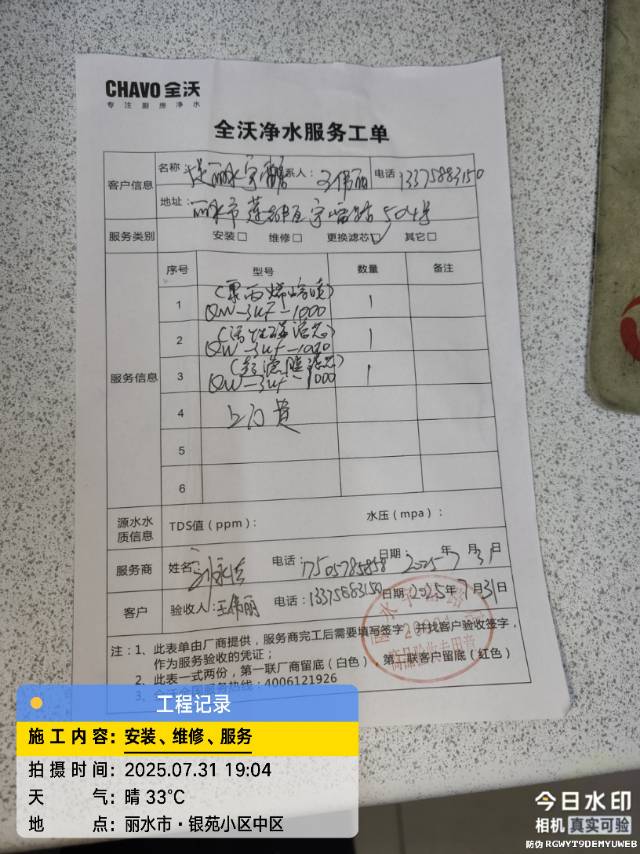 CHAVO 全沃
专注厨房净水
全沃净水服务工单
客户信息
名称: 丽水 联系人: 王伟丽 电话: 13375883150
地址: 丽水市莲都区 504号
服务类别 安装□ 维修□ 更换滤芯☑ 其它□
服务信息
序号 型号 数量 备注
1 (聚丙烯熔喷) QW-3UF-1000 1
2 (活性碳滤芯) QW-3UF-1000 1
3 (超滤膜滤芯) QW-3UF-1000 1
4 上门费
5
6
源水水质信息 TDS值(ppm): 水压(mpa):
服务商 姓名: 电话: 17505785858 日期 2025年7月31日
客户 验收人: 王伟丽 电话: 13375883150 日期 2025年7月31日
注:1、此表单由厂商提供,服务商完工后需要填写签字,并找客户验收签字,
作为服务验收的凭证;
2、此表一式两份,第一联厂商留底(白色),第二联客户留底(红色)
3、全沃全国服务热线:4006121926
工程记录
施工内容: 安装、维修、服务
拍摄时间: 2025.07.31 19:04
天气: 晴 33℃
地点: 丽水市·银苑小区中区
今日水印
相机 真实可验
防伪 RGWYT9DEMYUWEB